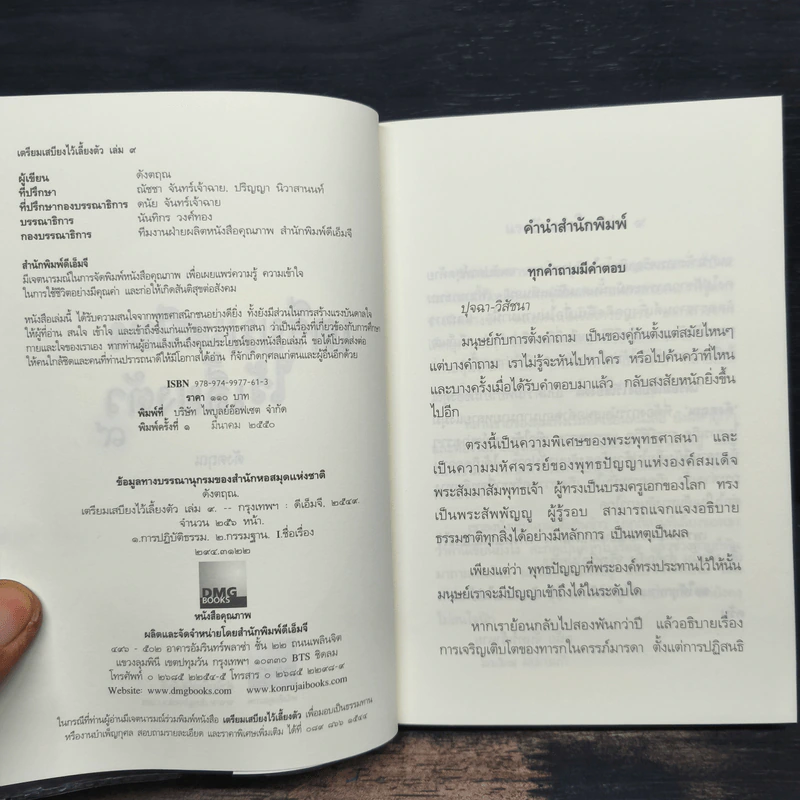 เตรียมเสบียงไว้เลี้ยงตัว เล่ม ๙
ผู้เขียน ดังตฤณ
ที่ปรึกษา ณัชชา จันทร์เจ้าฉาย, ปริญญา นิวาสานนท์
ที่ปรึกษากองบรรณาธิการ ดนัย จันทร์เจ้าฉาย
บรรณาธิการ นันทิกร วงศ์ทอง
กองบรรณาธิการ ทีมงานฝ่ายผลิตหนังสือคุณภาพ สำนักพิมพ์ดีเอ็มจี
สำนักพิมพ์ดีเอ็มจี
มีเจตนารมณ์ในการจัดพิมพ์หนังสือคุณภาพ เพื่อเผยแพร่ความรู้ ความเข้าใจ
ในการใช้ชีวิตอย่างมีคุณค่า และก่อให้เกิดสันติสุขต่อสังคม
หนังสือเล่มนี้ ได้รับความสนใจจากพุทธศาสนิกชนอย่างดียิ่ง ทั้งยังมีส่วนในการสร้างแรงบันดาลใจ
ให้ผู้ที่อ่าน สนใจ เข้าใจ และเข้าถึงซึ่งแก่นแท้ของพระพุทธศาสนา ว่าเป็นเรื่องที่เกี่ยวข้องกับการศึกษา
กายและใจของเราเอง หากท่านผู้อ่านแล้วเห็นถึงคุณประโยชน์ของหนังสือเล่มนี้ ขอได้โปรดส่งต่อ
ให้คนใกล้ชิดและคนที่ท่านปรารถนาดีให้มีโอกาสได้อ่าน ก็จักเกิดกุศลแก่ตนและผู้อื่นอีกด้วย
ISBN 978-974-9977-61-3
ราคา ๑๑๐ บาท
พิมพ์ที่ บริษัท ไพบูลย์อ๊อฟเซต จำกัด
พิมพ์ครั้งที่ ๑ มีนาคม ๒๕๕๐
ข้อมูลทางบรรณานุกรมของสำนักหอสมุดแห่งชาติ
ดังตฤณ.
เตรียมเสบียงไว้เลี้ยงตัว เล่ม ๙. -- กรุงเทพฯ : ดีเอ็มจี, ๒๕๔๙.
จำนวน ๒๕๖ หน้า.
๑.การปฏิบัติธรรม. ๒.กรรมฐาน. I.ชื่อเรื่อง
๒๙๔.๓๑๒๒
DMG
BOOKS
หนังสือคุณภาพ
ผลิตและจัดจำหน่ายโดยสำนักพิมพ์ดีเอ็มจี
๔๙๖ - ๕๐๒ อาคารอัมรินทร์พลาซ่า ชั้น ๒๒ ถนนเพลินจิต
แขวงลุมพินี เขตปทุมวัน กรุงเทพฯ ๑๐๓๓๐ BTS ชิดลม
โทรศัพท์ ๐ ๒๖๘๕ ๒๒๕๔-๕ โทรสาร ๐ ๒๖๘๕ ๒๒๙๘-๙
Website: www.dmgbooks.com, www.konrujaibooks.com
ในกรณีที่ท่านผู้อ่านมีเจตนารมณ์ร่วมพิมพ์หนังสือ เตรียมเสบียงไว้เลี้ยงตัว เพื่อมอบเป็นธรรมทาน
หรืองานบำเพ็ญกุศล สอบถามรายละเอียด และราคาพิเศษเพิ่มเติม ได้ที่ ๐๘๙ ๘๖๖ ๑๕๔๔
คำนำสำนักพิมพ์
ทุกคำถามมีคำตอบ
ปุจฉา-วิสัชนา
มนุษย์กับการตั้งคำถาม เป็นของคู่กันตั้งแต่สมัยไหนๆ
แต่บางคำถาม เราไม่รู้จะหันไปหาใคร หรือไปค้นคว้าที่ไหน
และบางครั้งเมื่อได้รับคำตอบมาแล้ว กลับสงสัยหนักยิ่งขึ้น
ไปอีก
ตรงนี้เป็นความพิเศษของพระพุทธศาสนา และ
เป็นความมหัศจรรย์ของพุทธปัญญาแห่งองค์สมเด็จ
พระสัมมาสัมพุทธเจ้า ผู้ทรงเป็นบรมครูเอกของโลก ทรง
เป็นพระสัพพัญญู ผู้รู้รอบ สามารถแจกแจงอธิบาย
ธรรมชาติทุกสิ่งได้อย่างมีหลักการ เป็นเหตุเป็นผล
เพียงแต่ว่า พุทธปัญญาที่พระองค์ทรงประทานไว้ให้นั้น
มนุษย์เราจะมีปัญญาเข้าถึงได้ในระดับใด
หากเราย้อนกลับไปสองพันกว่าปี แล้วอธิบายเรื่อง
การเจริญเติบโตของทารกในครรภ์มารดา ตั้งแต่การปฏิสนธิ